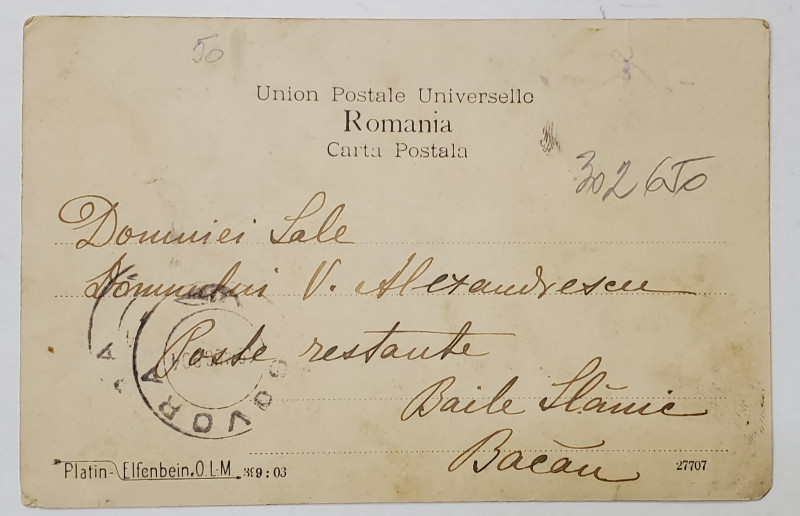 50
Union Postale Universelle
Romania
Carta Postala
302650
Domniei Sale
Domnului V. Alexandrescu
Poste restante
Baile Slănic
Bacău
GOVORA
Platin-Elfenbein. O.L-M. 399:03
27707